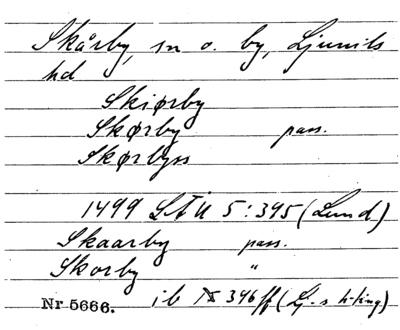 Skårby, sn o. by, Ljunits
hd
Skiørby
Skørby pass.
Skørbyss
1499 LÄU 5:395 (Lund)
Skaarby pass.
Skorby "
Nr 5666. ib 396 ff (Lj-s h-ting)